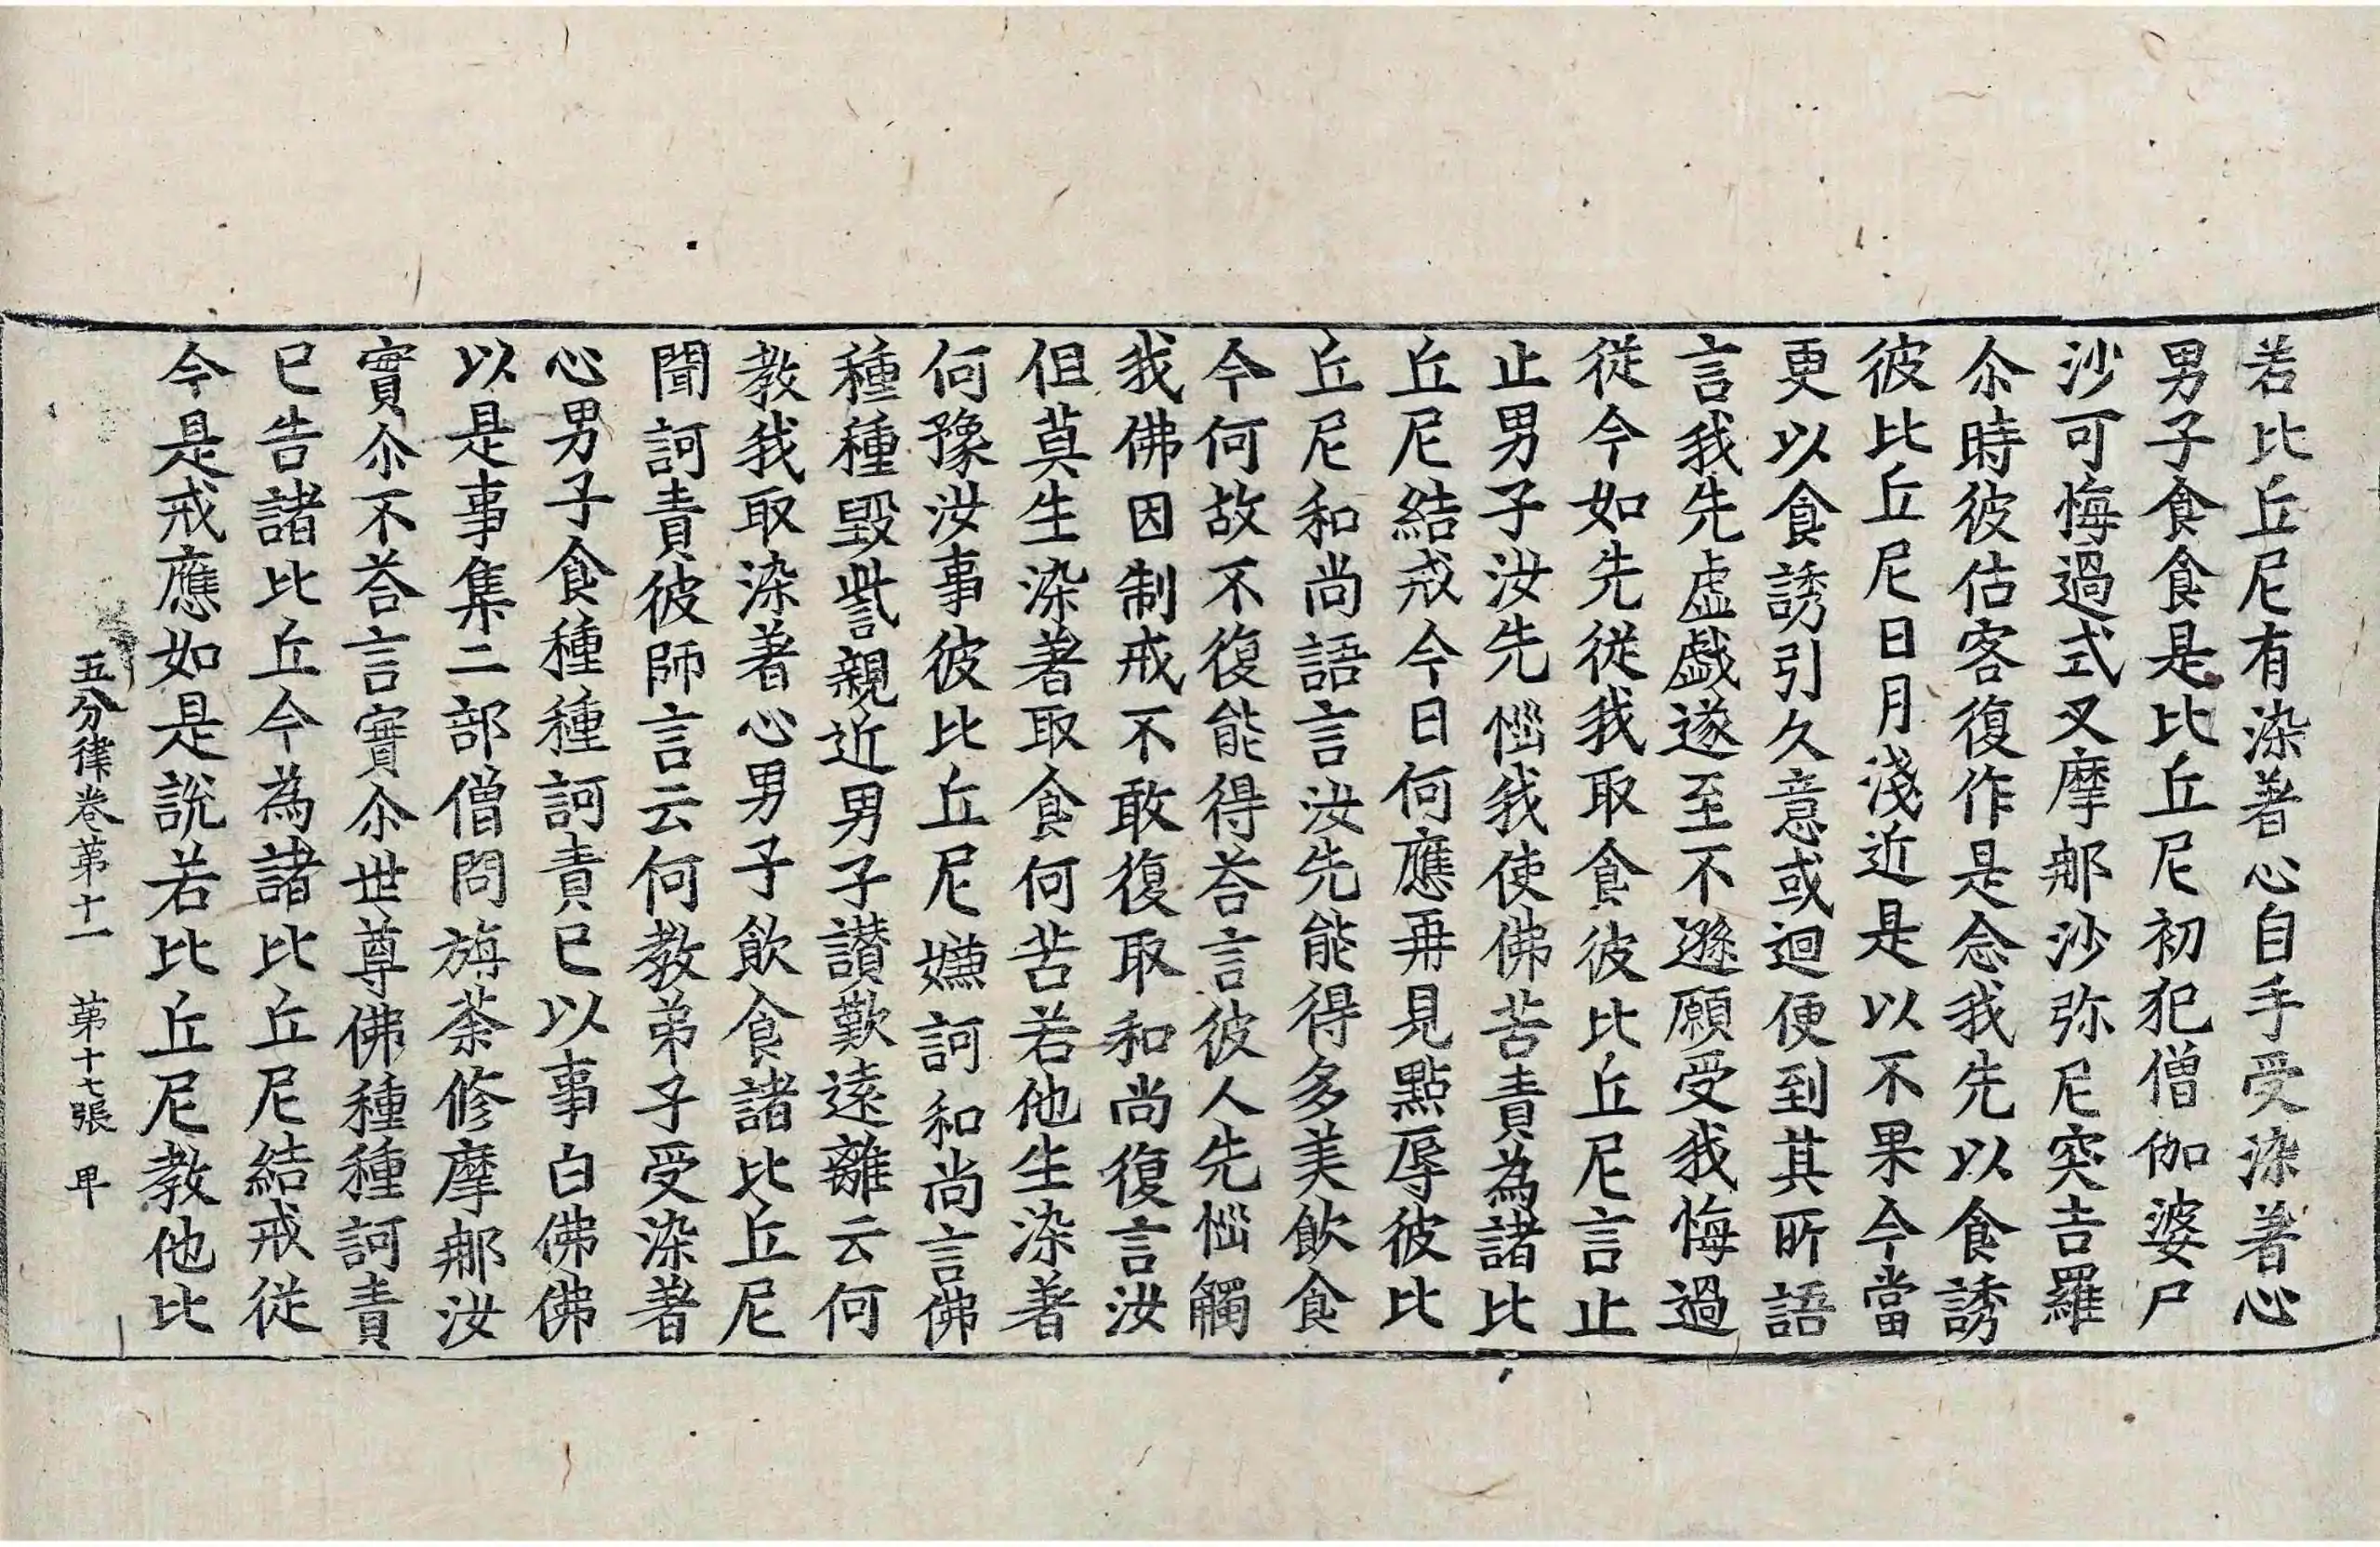 若比丘尼有染著心自手受染著心
男子食食是比丘尼初犯僧伽婆尸
沙可悔過式叉摩𨙻沙弥尼突吉羅
尒時彼估客復作是念我先以食誘
彼比丘尼日月淺近是以不果今當
更以食誘引久意或迴便到其所語
言我先虛戲遂至不遜願受我悔過
從今如先從我取食彼比丘尼言止
止男子汝先惱我使佛苦責為諸比
丘尼結戒今日何應再見點辱彼比
丘尼和尚語言汝先能得多美飲食
今何故不復能得荅言彼人先惱觸
我佛因制戒不敢復取和尚復言汝
但莫生染著取食何苦若他生染著
何豫汝事彼比丘尼嫌訶和尚言佛
種種毀呰親近男子讃歎遠離云何
教我取染著心男子飲食諸比丘尼
聞訶責彼師言云何教弟子受染著
心男子食種種訶責已以事白佛佛
以是事集二部僧問旃荼修摩𨙻汝
實尒不荅言實尒世尊佛種種訶責
已告諸比丘今為諸比丘尼結戒從
今是戒應如是說若比丘尼教他比
五分律卷第十一 第十七張 甲